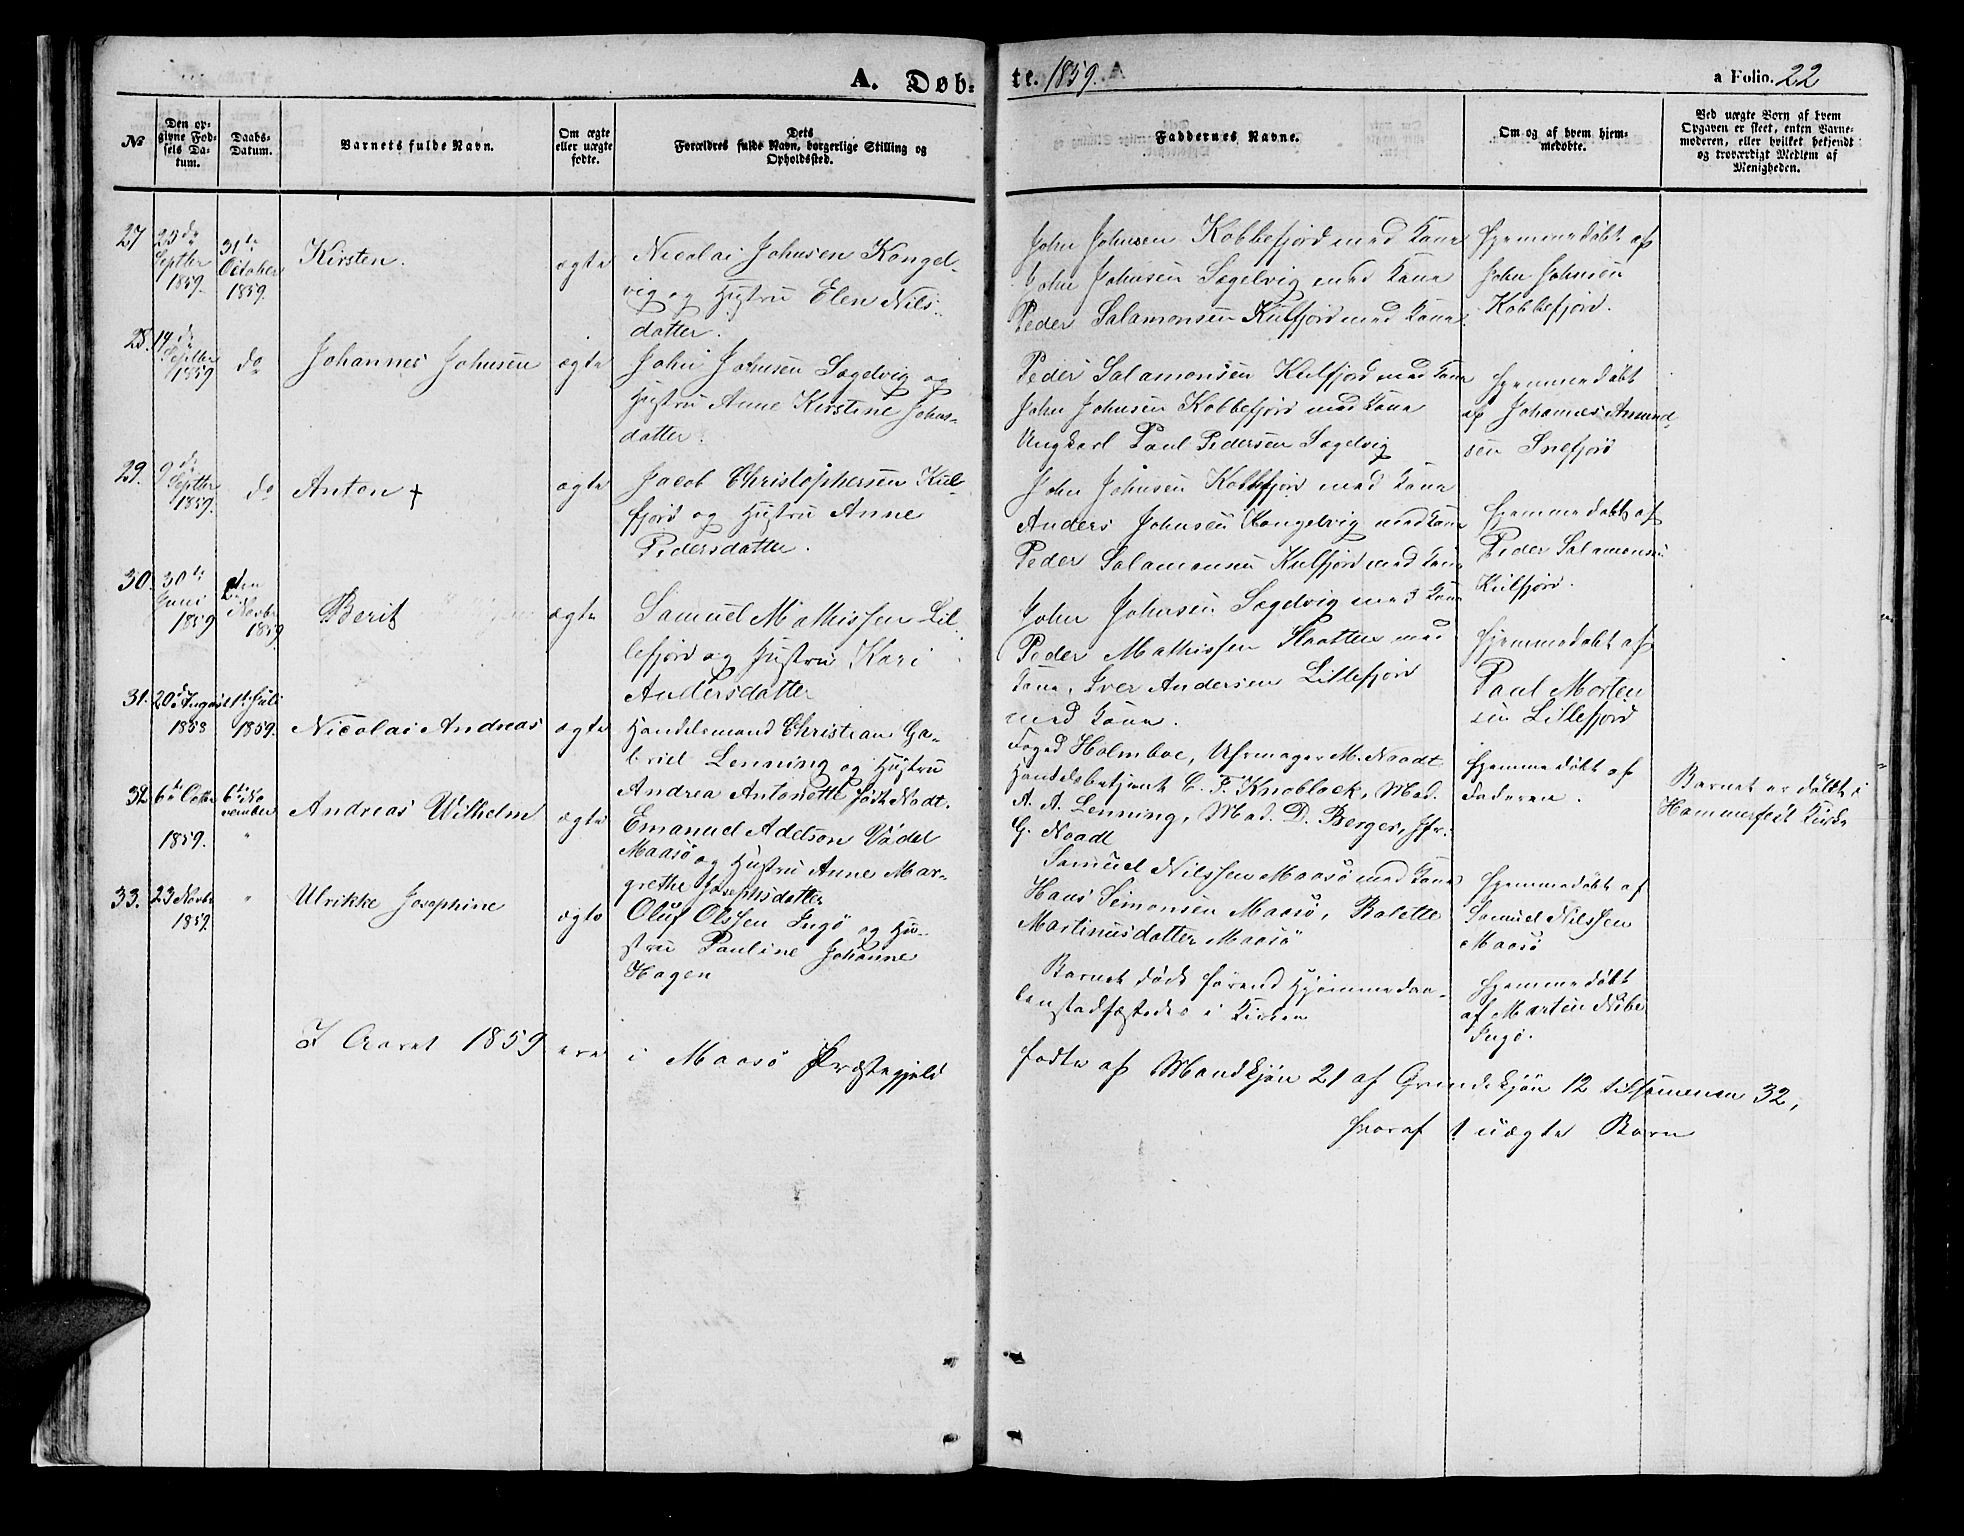 A. Døb-
te. 1859.
a Folio. 22
No
Den op-
givne Fød-
sels Da-
tum.
Daabs-
Datum.
Barnets fulde Navn.
Om ægte
eller uægte
fødte.
Dets
Forældres fulde Navn, borgerlige Stilling og
Opholdssted.
Faddernes Navne.
Om og af hvem hjem-
medøbte.
Ved uægte Børn af hvem
Opgaven er skeet, enten Barne-
moderen, eller hvilket bekjendt
og troværdigt Medlem af
Menigheden.
27
Septber
1859.
31te
October
1859.
Kirsten.
ægte
Nicolai Johnsen Kongel-
vig og Hustru Elen Nils-
datter.
John Johnsen Kobbefjord med Kone
John Johnsen Sægelvig med Kone
Peder Salamonsen Kulfjord med Kone.
Hjemmedøbt af
John Johnsen
Kobbefjord.
28.
19de
Septbr
1859
do
Johannes Johnsen
ægte
John Johnsen Sægelvig og
Hustru Anne Kirstine Johns-
datter.
Peder Salamonsen Kulfjord med Kone
John Johnsen Kobbefjord med Kone
Ungkarl Paul Pedersen Sægelvig
Hjemmedøbt
af Johannes Amund-
sen Snefjord
29.
9de
Septbr
1859.
do
Anton †
ægte
Jacob Christophersen Kul-
fjord og Hustru Anne
Pedersdatter.
John Johnsen Kobbefjord med Kone
Anders Johnsen Kongelvig med Kone
Peder Salamonsen Kulfjord med Kone
Hjemmedøbt af
Peder Salamonsen
Kulfjord.
30.
30te
Juni
1859
Novbr
1859
Berit
ægte
Samuel Mathissen Lil-
lefjord og Hustru Kari
Andersdatter
John Johnsen Sægelvig med Kone
Peder Mathissen Slaatten med
Kone, Iver Andersen Lillefjord
med Kone.
Hjemmedøbt af
Paul Morten
sen Lillefjord
31.
20d August
1858
1te Juli
1859.
Nicolai Andreas
ægte
Handelsmand Christian Ga-
briel Lenning og Hustru
Andrea Antonette født Nodt.
Foged Holmboe, Uhrmager M. Noodt
Handelsbetjent C. F. Knoblock, Mad.
A. A. Lenning, Mad. D. Berger, Jfr.
G. Noodt
Hjemmedøbt af
Faderen.
Barnet er døbt i
Hammerfest Kirke
32
6te Octbr
1859.
6te No
vember
"
Andreas Wilhelm
ægte
Emanuel Adelson Vædel
Maasø og Hustru Anne Mar-
grethe Josephsdatter
Samuel Nilssen Maasø med Kone
Hans Simonsen Maasø, Bolette
Martinusdatter Maasø
Hjemmedøbt af
Samuel Nilssen
Maasø
33.
23 Novbr
1859.
"
Ulrikke Josephine
ægte
Oluf Olssen Ingø og Hu-
stru Pauline Johanne
Hagen
Barnet døde førend Hjemmedaa-
ben stadfæstedes i Kirken
Hjemmedøbt
af Morten
Ingø.
I Aaret 1859 ere i Maasø Præstegjeld
fødte af Mandkjøn 21 af Qvindekjøn 12 tilsammen 32,
hvoraf 1 uægte Barn